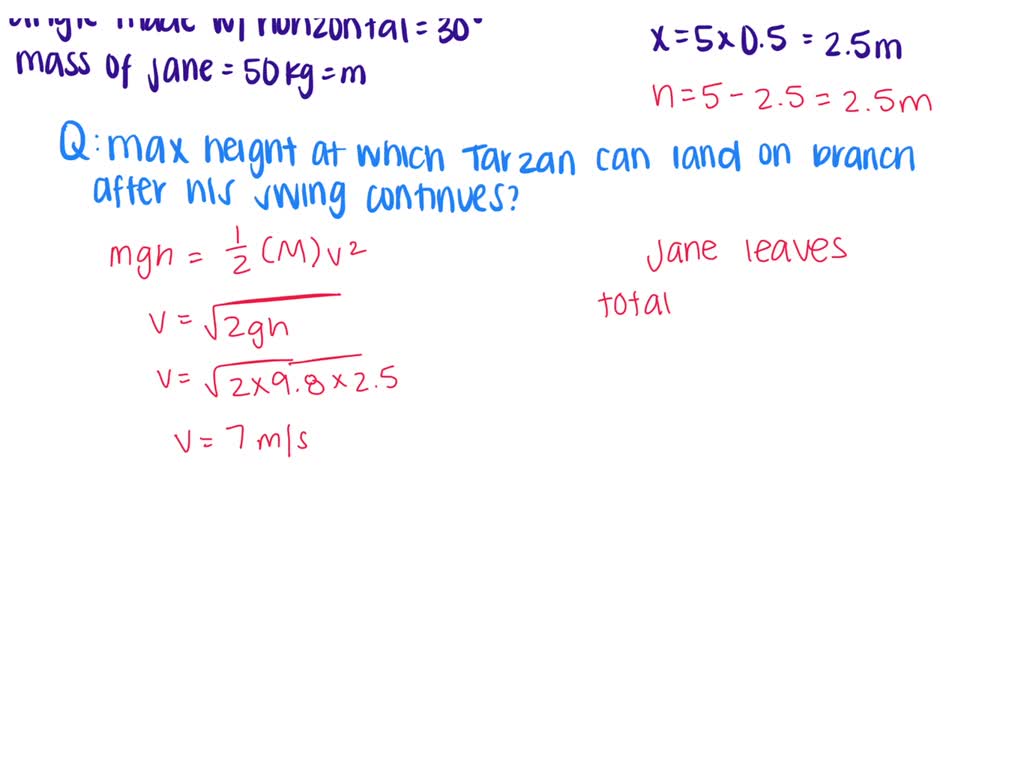 angle made w/ horizontal = 30°
mass of jane = 50 kg = m
x = 5 x 0.5 = 2.5 m
h = 5 - 2.5 = 2.5 m
Q: max height at which Tarzan can land on branch
after his swing continues?
mgh = 1/2 (M) v²
v = √2gh
v = √2 x 9.8 x 2.5
v = 7 m/s
Jane leaves
total